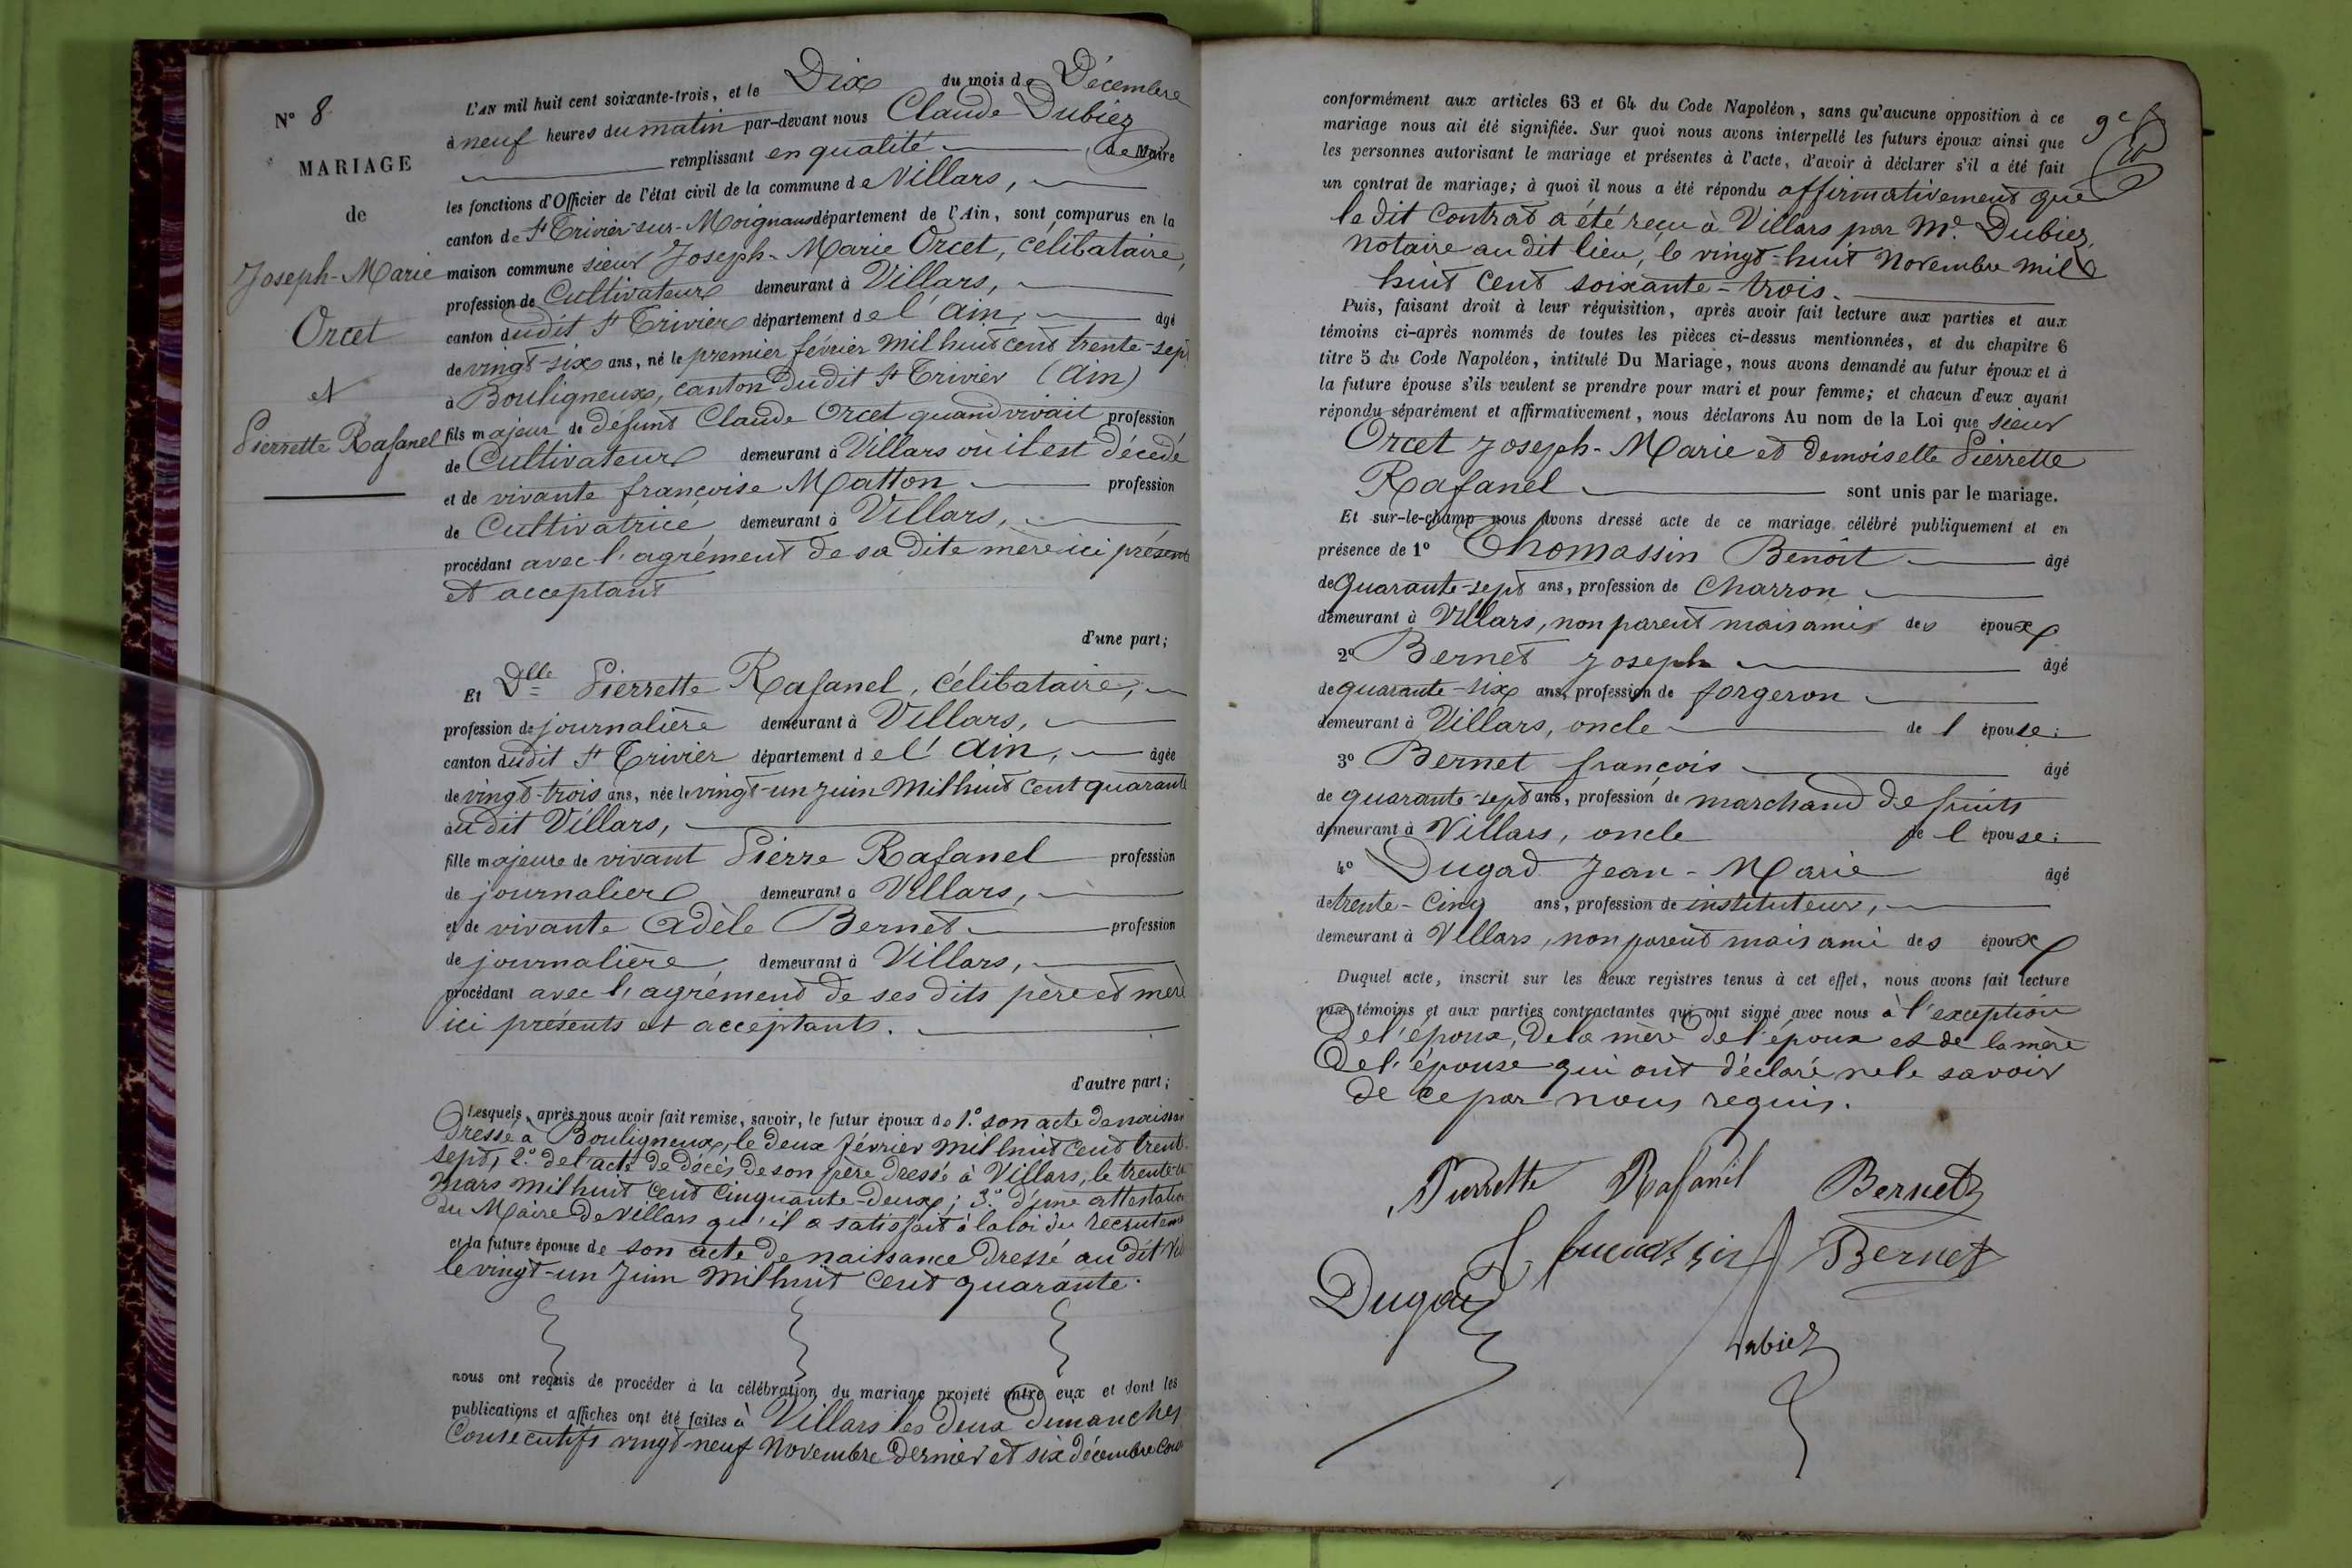 N° 8
MARIAGE
de
Joseph-Marie
Orcet
et
Pierrette Rafanel
L'AN mil huit cent soixante-trois, et le Dix du mois de Décembre
à neuf heures du matin par-devant nous Claude Dubiez
remplissant en qualité de Maire
les fonctions d'Officier de l'état civil de la commune de Villars,
canton de St Trivier-sur-Moignans département de l'Ain, sont comparus en la
maison commune sieur Joseph-Marie Orcet, célibataire,
profession de Cultivateur demeurant à Villars,
canton dudit St Trivier département de l'Ain, âgé
de vingt-six ans, né le premier février mil huit cent trente-sept
à Bouligneux, canton dudit St Trivier (Ain)
fils majeur de défunt Claude Orcet quand vivait profession
de Cultivateur demeurant à Villars où il est décédé
et de vivante françoise Matton profession
de Cultivatrice demeurant à Villars,
procédant avec l'agrément de sa dite mère ici présente
et acceptant
d'une part;
Et Dlle Pierrette Rafanel, célibataire,
profession de journalière demeurant à Villars,
canton dudit St Trivier département de l'Ain, âgée
de vingt-trois ans, née le vingt-un juin mil huit cent quarante
audit Villars,
fille majeure de vivant Pierre Rafanel profession
de journalier demeurant à Villars,
et de vivante Adèle Bernet profession
de journalière demeurant à Villars,
procédant avec l'agrément de ses dits père et mère
ici présents et acceptants.
d'autre part;
Lesquels, après nous avoir fait remise, savoir, le futur époux de 1° son acte de naissan
dressé à Bouligneux, le deux février mil huit cent trente
sept, 2° de l'acte de décès de son père dressé à Villars, le trente-
mars mil huit cent cinquante-deux; 3° d'une attestation
du Maire de Villars qu'il a satisfait à la loi du recrutem
et la future épouse de son acte de naissance dressé au dit Vil
le vingt-un juin mil huit cent quarante.
nous ont requis de procéder à la célébration du mariage projeté entre eux et dont les
publications et affiches ont été faites à Villars les deux dimanches
consécutifs vingt-neuf Novembre dernier et six décembre cour
9e
conformément aux articles 63 et 64 du Code Napoléon, sans qu'aucune opposition à ce
mariage nous ait été signifiée. Sur quoi nous avons interpellé les futurs époux ainsi que
les personnes autorisant le mariage et présentes à l'acte, d'avoir à déclarer s'il a été fait
un contrat de mariage; à quoi il nous a été répondu affirmativement que
le dit contrat a été reçu à Villars par Me. Dubiez,
notaire au dit lieu, le vingt-huit Novembre mil
huit cent soixante-trois.
Puis, faisant droit à leur réquisition, après avoir fait lecture aux parties et aux
témoins ci-après nommés de toutes les pièces ci-dessus mentionnées, et du chapitre 6
titre 5 du Code Napoléon, intitulé Du Mariage, nous avons demandé au futur époux et à
la future épouse s'ils veulent se prendre pour mari et pour femme; et chacun d'eux ayant
répondu séparément et affirmativement, nous déclarons Au nom de la Loi que sieur
Orcet Joseph-Marie et demoiselle Pierrette
Rafanel sont unis par le mariage.
Et sur-le-champ nous avons dressé acte de ce mariage célébré publiquement et en
présence de 1° Thomassin Benoît âgé
de quarante-sept ans, profession de charron
demeurant à Villars, non parent mais ami des époux
2° Bernet Joseph âgé
de quarante-six ans, profession de forgeron
demeurant à Villars, oncle de l épouse;
3° Bernet françois âgé
de quarante-sept ans, profession de marchand de fruits
demeurant à Villars, oncle de l épouse;
4° Dugad Jean-Marie âgé
de trente-cinq ans, profession de instituteur,
demeurant à Villars, non parent mais ami des époux
Duquel acte, inscrit sur les deux registres tenus à cet effet, nous avons fait lecture
aux témoins et aux parties contractantes qui ont signé avec nous à l'exception
de l'époux, de la mère de l'époux et de la mère
de l'épouse qui ont déclaré ne le savoir
de ce par nous requis.
Pierrette Rafanel Bernet
Bernet
Dugad
Dubiez